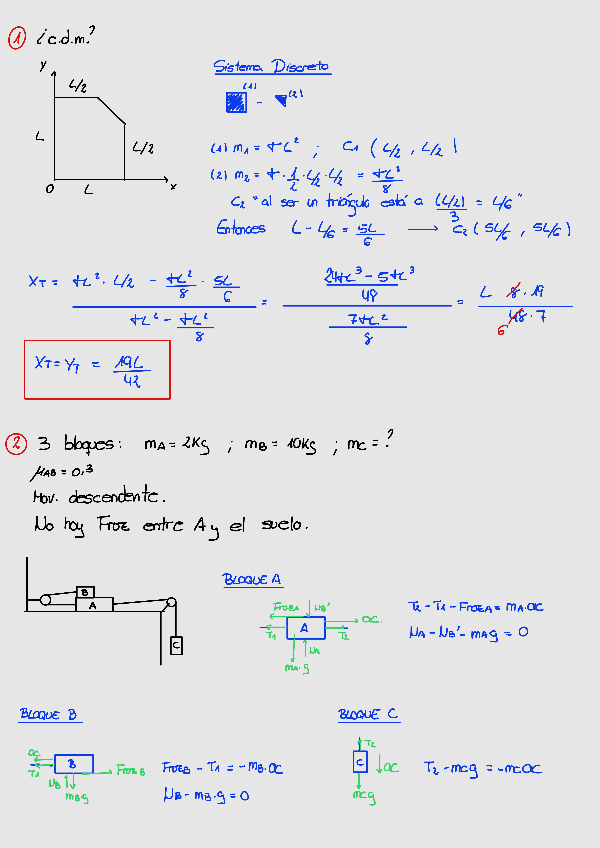 1 ¿c.d.m.?
y
L/2
L
L/2
O L x
Sistema Discreto
(1) - (2)
(1) m₁ = σL² ; C₁ (L/2, L/2)
(2) m₂ = σ·1/2·L/2·L/2 = σL²/8
C₂ "al ser un triángulo está a (L/2)/3 = L/6"
Entonces L - L/6 = 5L/6 → C₂ (5L/6, 5L/6)
XT = (σL²·L/2 - σL²/8·5L/6)/(σL² - σL²/8) = ((24σL³ - 5σL³)/48)/(7σL²/8) = L 8·19/48·7
6
XT = YT = 19L/42
2 3 bloques: mA = 2Kg ; mB = 10Kg ; mC = ?
μAB = 0,3
Mov. descendente.
No hay FROZ entre A y el suelo.
B
A
C
BLOQUE A
FROZA NB'
T1 A T2 a
mA·g NA
T2 - T1 - FROZA = mA·a
NA - NB' - mAg = 0
BLOQUE B
a
T1 B FROZB
NB mBg
FROZB - T1 = -mB·a
NB - mB·g = 0
BLOQUE C
T2
C a
mcg
T2 - mcg = -mca